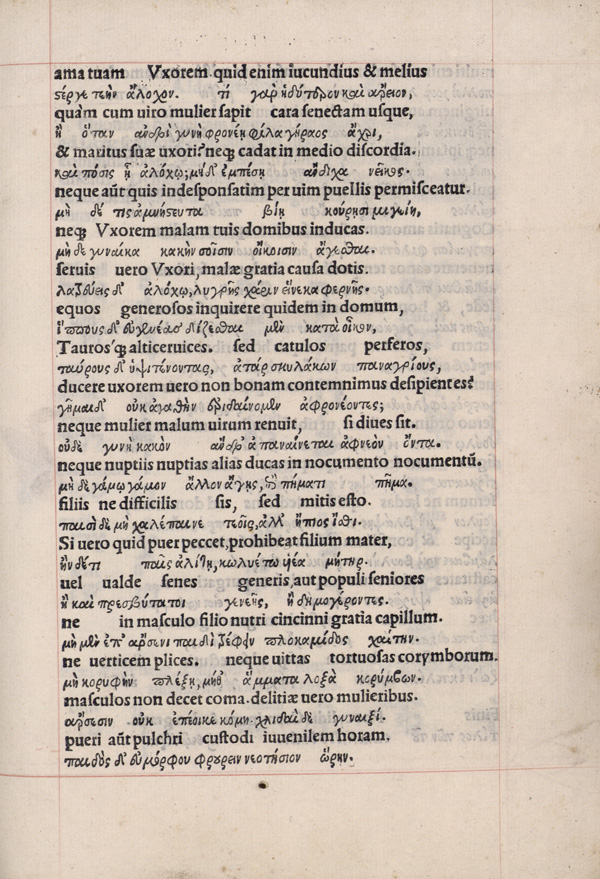 ama tuam Vxorem. quid enim iucundius & melius
ϛέργε τεὴν ἄλοχον. τί γὰρ ἡδύτερον καὶ ἄρειον,
quàm cum uiro mulier sapit cara senectam usque,
ἢ ὅταν ἀνδρὶ γυνὴ φρονέῃ φίλα γήραος ἄχρι,
& maritus suæ uxori? neq; cadat in medio discordia.
καὶ πόσις ᾗ ἀλόχῳ; μηδ' ἐμπέσῃ ἄνδιχα νεῖκος.
neque aūt quis indesponsatim per uim puellis permisceatur.
μὴ δέ τις ἀμνήστευτα βίῃ κούρῃσι μιγείη,
neq; Vxorem malam tuis domibus inducas.
μὴ δὲ γυναῖκα κακὴν σοῖσιν οἴκοισιν ἄγεσθαι.
seruis uero Vxori, malæ gratia causa dotis.
λατρεύεις δ' ἀλόχῳ, λυγρῆς χάριν εἵνεκα φερνῆς.
equos generosos inquirere quidem in domum,
ἵππους δ' εὐγενέας δίζεσθαι μὲν κατὰ οἶκον,
Tauros'q; alticeruices. sed catulos perferos,
ταύρους δ' ὑψιτένοντας, ἀτὰρ σκυλάκων παναγρίους,
ducere uxorem uero non bonam contemnimus desipientes?
γῆμαι δ' οὐκ ἀγαθὴν ἐριδαίνομεν ἀφρονέοντες;
neque mulier malum uirum renuit, si diues sit.
οὐδὲ γυνὴ κακὸν ἄνδρ' ἀπαναίνεται ἀφνεὸν ὄντα.
neque nuptiis nuptias alias ducas in nocumento nocumentū.
μὴ δὲ γάμῳ γάμον ἄλλον ἄγῃς, ἐπὶ πήματι πῆμα.
filiis ne difficilis sis, sed mitis esto.
παισὶ δὲ μὴ χαλέπαινε τεοῖς, ἀλλ' ἤπιος ἴσθι.
Si uero quid puer peccet, prohibeat filium mater,
ἢν δέ τι παῖς ἀλίτῃ, κωλυέτω ἡέα μήτηρ.
uel ualde senes generis, aut populi seniores
ἢ καὶ πρεσβύτατοι γενεῆς, ἢ δημογέροντες.
ne in masculo filio nutri cincinni gratia capillum.
μὴ μὲν ἐπ' ἄρσενι παιδὶ τρέφην πλοκαμῖδος χαίτην.
ne uerticem plices. neque uittas tortuosas corymborum.
μὴ κορυφὴν πλέξῃ, μηδ' ἅμματα λοξὰ κορύμβων.
masculos non decet coma. delitiæ uero mulieribus.
ἄρσεσιν οὐκ ἐπέοικε κόμη. χλιδαὶ δὲ γυναιξί.
pueri aūt pulchri custodi iuuenilem horam.
παιδὸς δ' εὐμόρφου φρουρεῖν νεοτήσιον ὥρην.